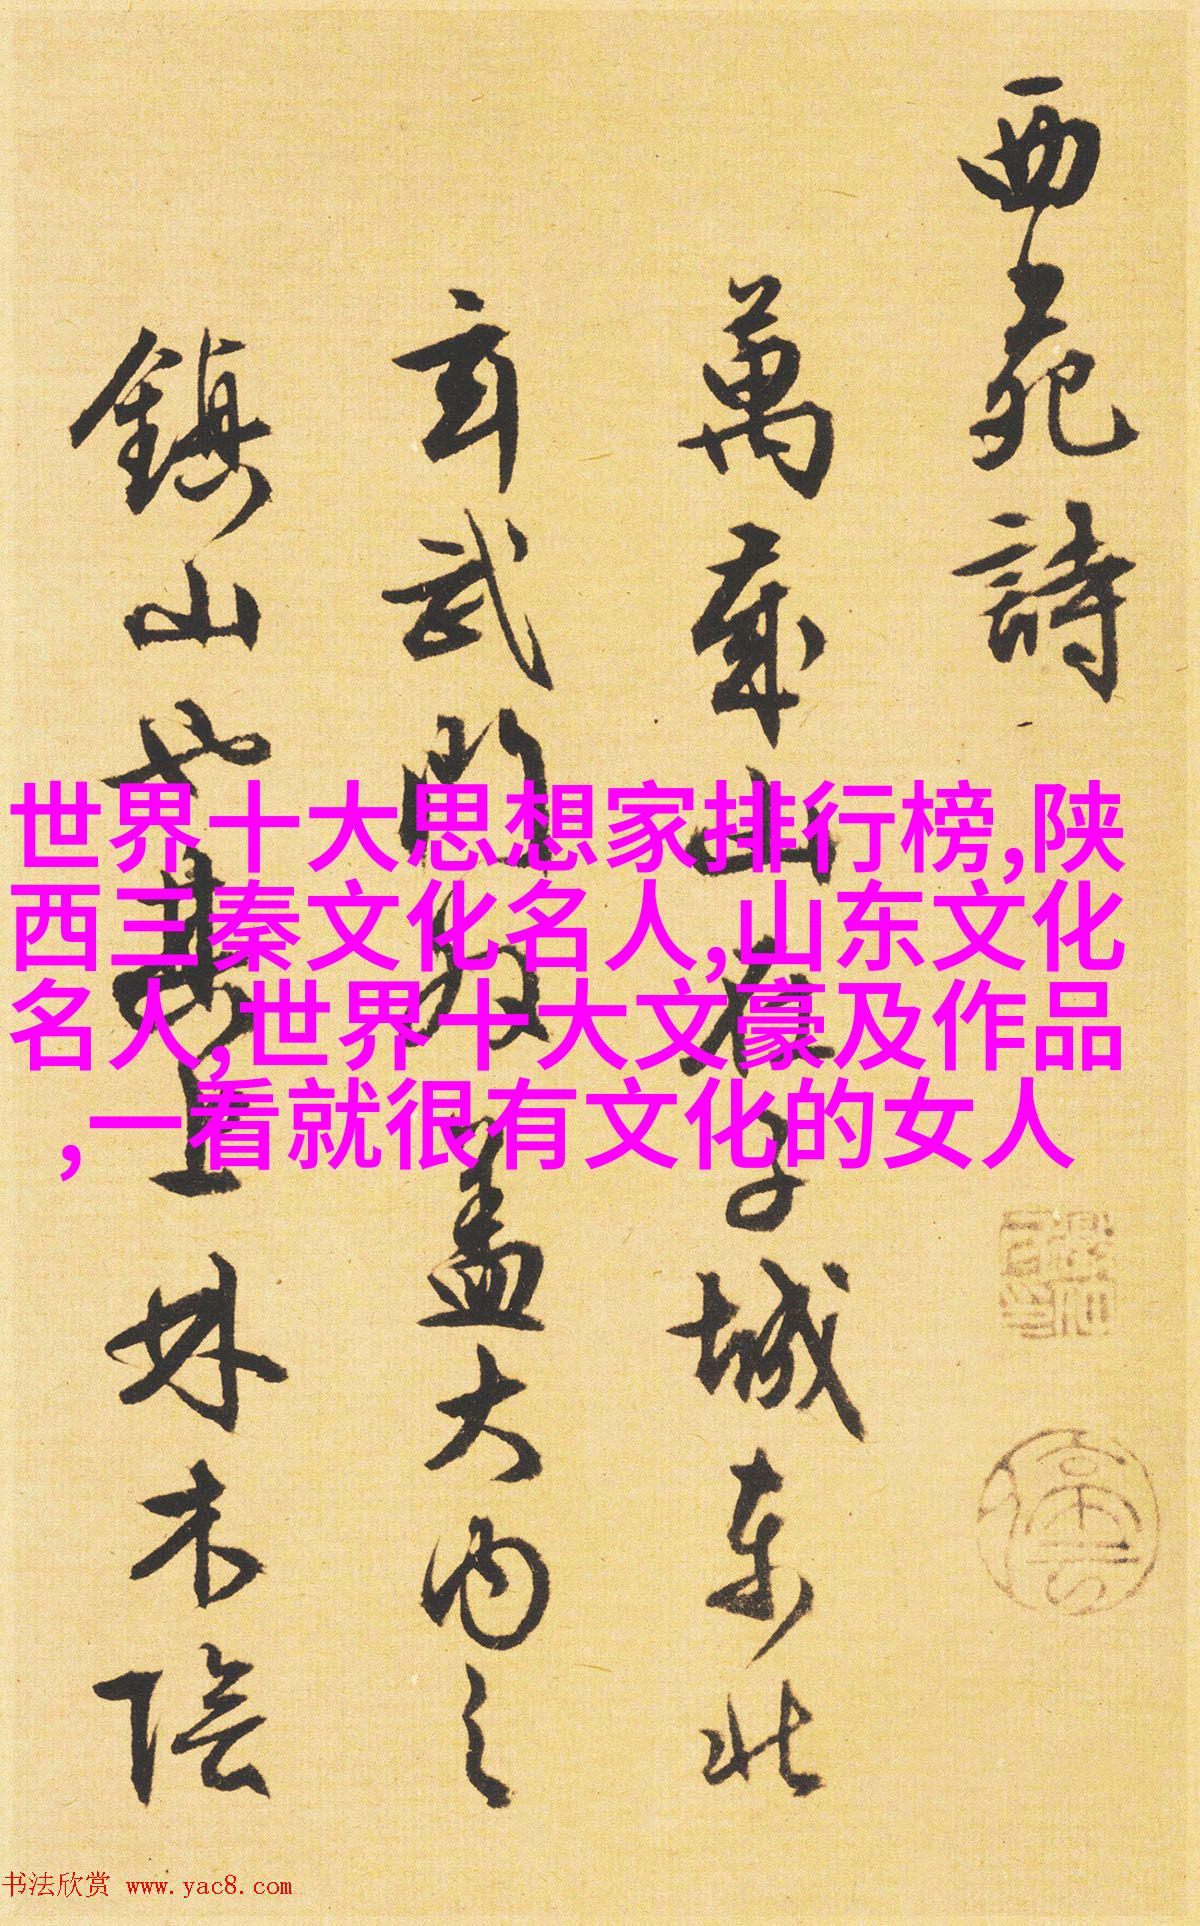 西苑詩
萬歲山在子城東北
玄武門外為蓋大內之
鎮山也其上林木陰
世界十大思想家排行榜,陕
西三秦文化名人,山东文化
名人,世界十大文豪及作品
,一看就很有文化的女人
书法欣赏 www.yac8.com